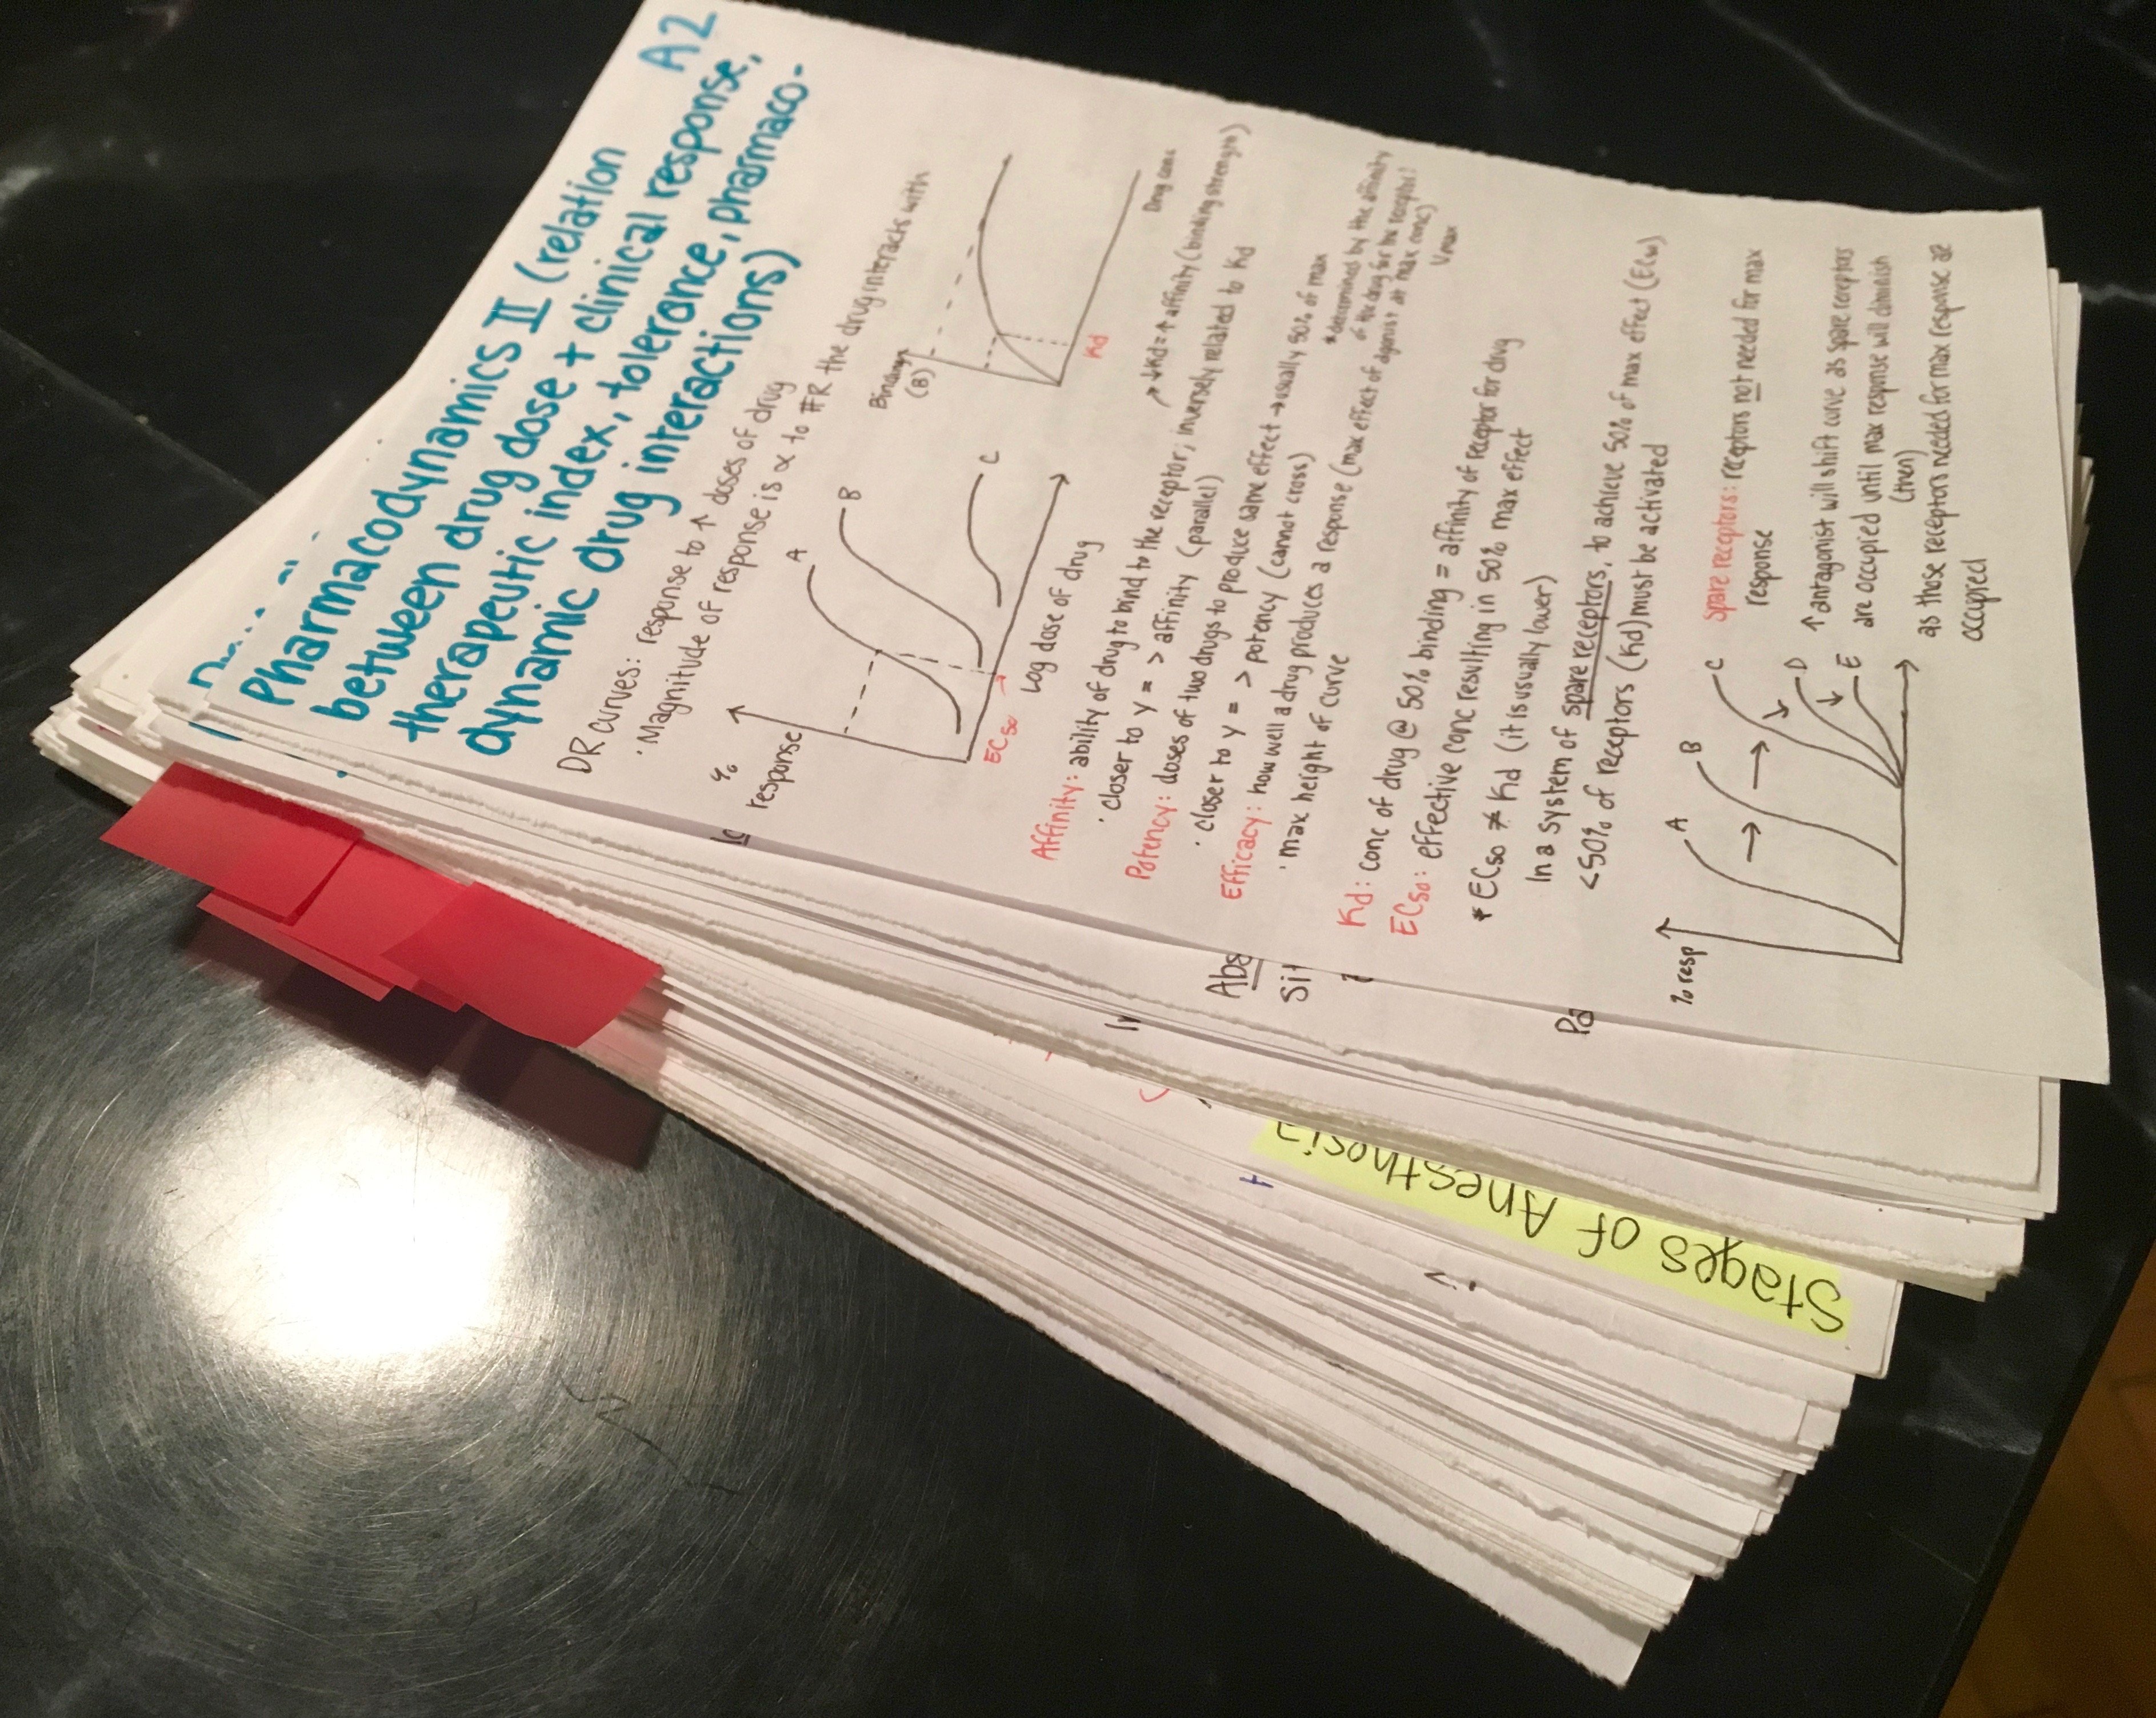 A2
Pharmacodynamics II (relation
between drug dose + clinical response,
therapeutic index, tolerance, pharmaco-
dynamic drug interactions)
DR curves: response to ↑ doses of drug
· Magnitude of response is ∝ to #R the drug interacts with
%
response
A
B
C
EC50
Log dose of drug
Binding
(B)
Kd
Drug conc
Affinity: ability of drug to bind to the receptor; inversely related to Kd
↓Kd = ↑ affinity (binding strength)
· closer to y = > affinity (parallel)
Potency: doses of two drugs to produce same effect → usually 50% of max
· closer to y = > potency (cannot cross)
Efficacy: how well a drug produces a response (max effect of agonist at max conc)
· max height of curve
*determined by the affinity
of the drug for the receptor?
Vmax
Kd: conc of drug @ 50% binding = affinity of receptor for drug
EC50: effective conc resulting in 50% max effect
* EC50 ≠ Kd (it is usually lower)
In a system of spare receptors, to achieve 50% of max effect (EC50)
<50% of receptors (Kd) must be activated
% resp
A
B
C
D
E
Spare receptors: receptors not needed for max
response
↑ antagonist will shift curve as spare receptors
are occupied until max response will diminish
(then)
as those receptors needed for max response are
occupied
Abs
Sit
Pa
Stages of Anesthesia